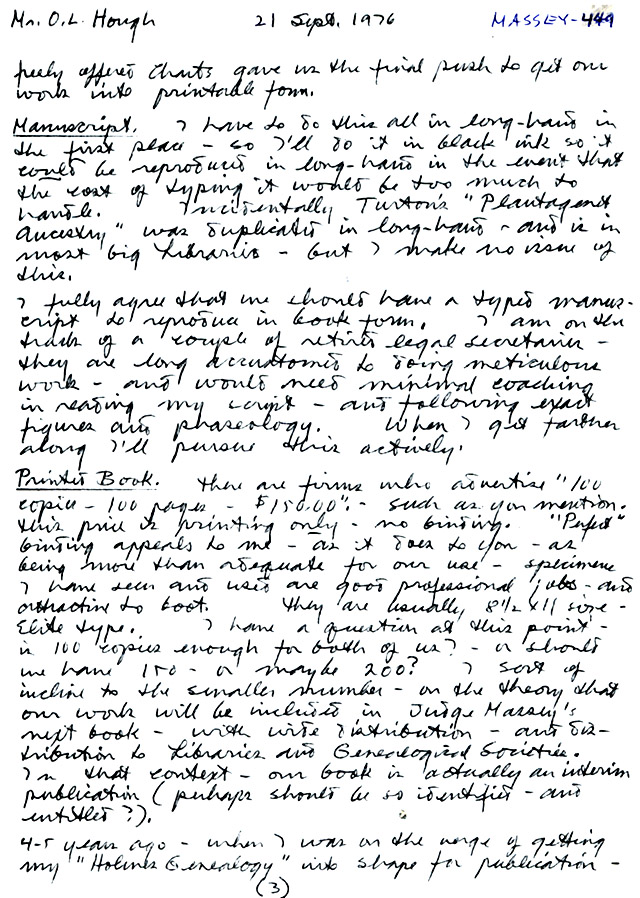 Mr. O.L. Hough 21 Sept. 1976 MASSEY-449
freely offered charts gave us the final push to get our
work into printable form.
Manuscript. I have to do this all in long-hand in
the first place - so I'll do it in black ink so it
could be reproduced in long-hand in the event that
the cost of typing it would be too much to
handle. Incidentally Turton's "Plantagenet
Ancestry" was duplicated in long-hand - and is in
most big Libraries - but I make no issue of
this.
I fully agree that we should have a typed manus-
cript to reproduce in book form. I am on the
track of a couple of retired legal secretaries -
they are long accustomed to doing meticulous
work - and would need minimal coaching
in reading my script - and following exact
figures and phraseology. When I get farther
along I'll pursue this actively.
Printed Book. There are firms who advertise "100
copies - 100 pages - $150.00". - such as you mention.
This price is printing only - no binding. "Perfect"
binding appeals to me - as it does to you - as
being more than adequate for our use - specimens
I have seen and used are good professional jobs - and
attractive to boot. They are usually 8 1/2 x 11 size -
Elite type. I have a question at this point -
is 100 copies enough for both of us? - or should
we have 150 - or maybe 200? I sort of
incline to the smaller number - on the theory that
our work will be included in Judge Massey's
next book - with wide distribution - and dis-
tribution to Libraries and Genealogical Societies.
In that context - our book is actually an interim
publication (perhaps should be so identified - and
entitled?).
4-5 years ago - when I was on the verge of getting
my "Holmes Genealogy" into shape for publication -
(3)